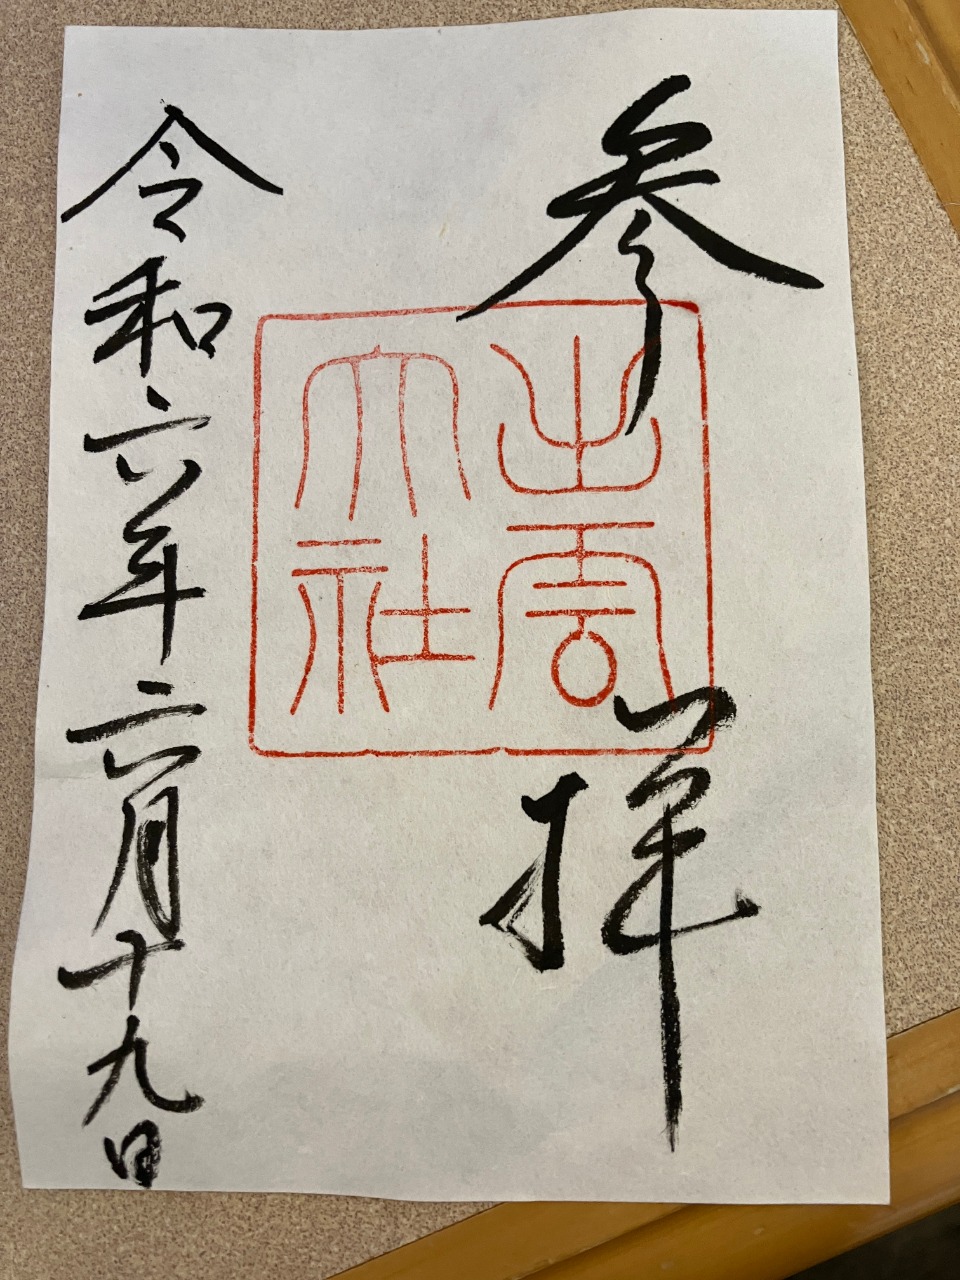 参拝
出雲
大社
令和六年六月十九日